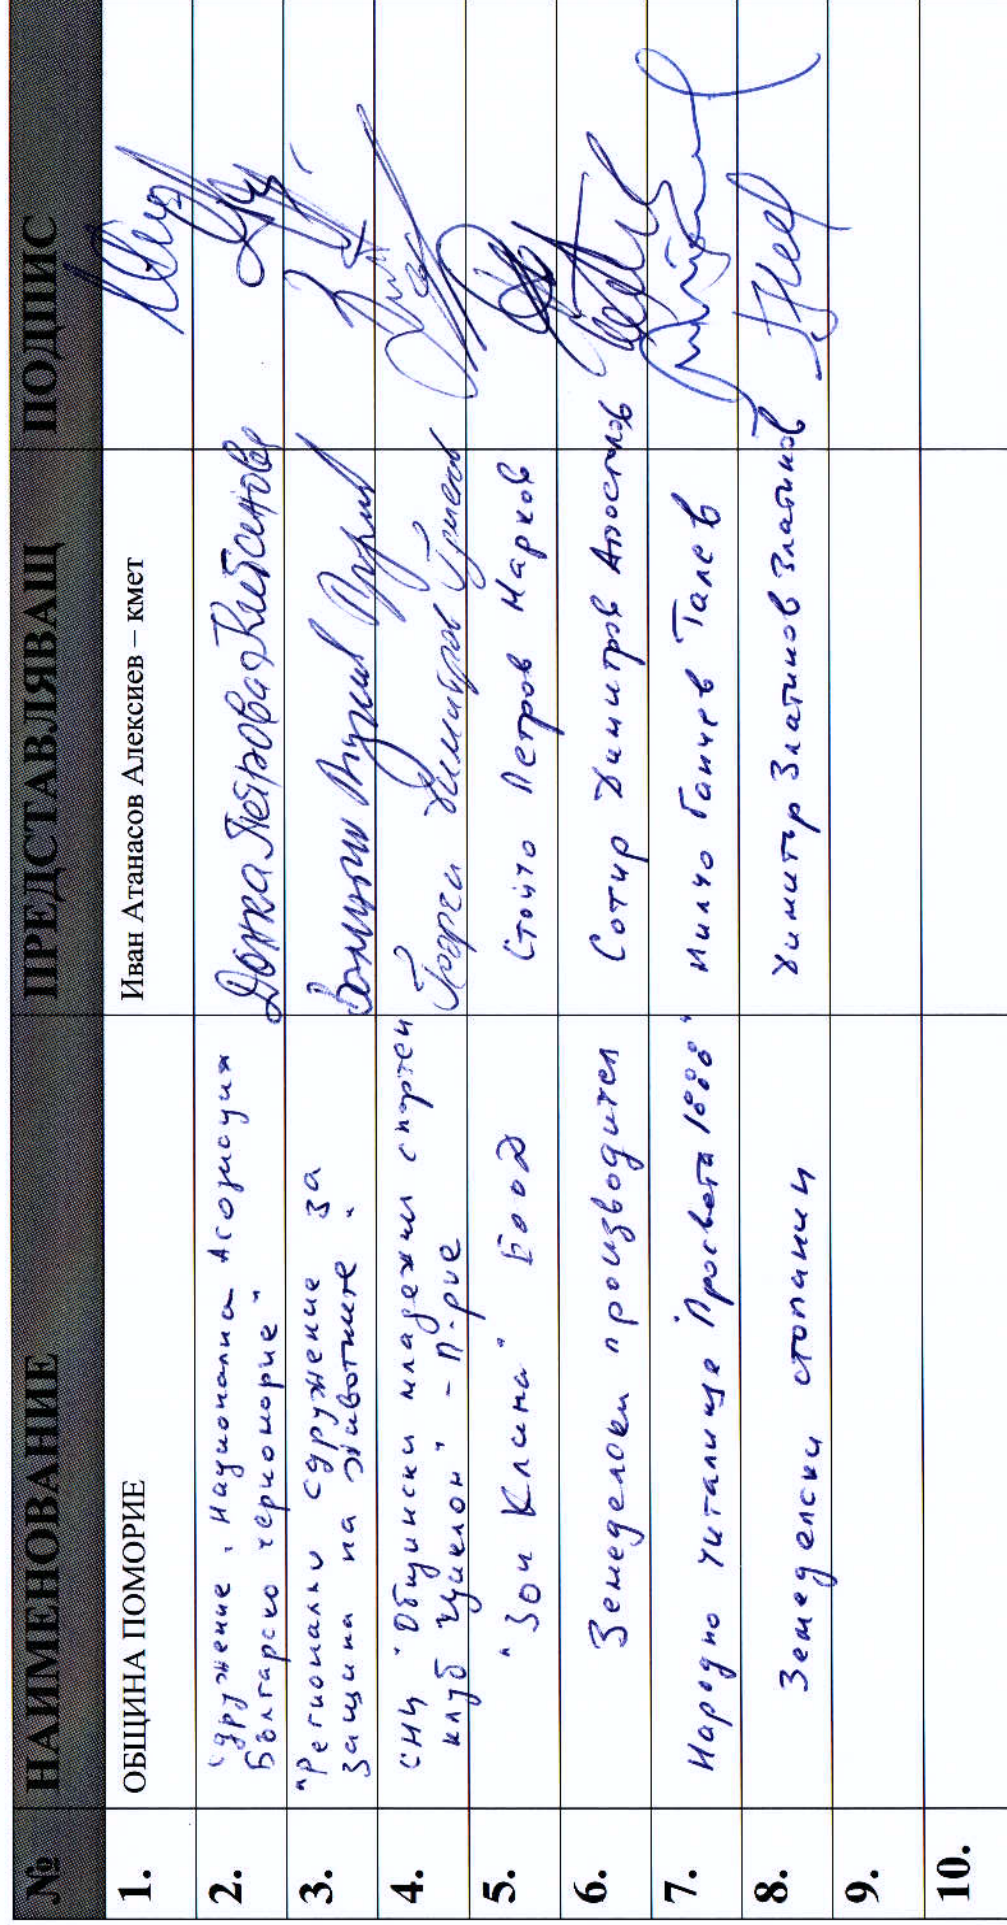 № НАИМЕНОВАНИЕ ПРЕДСТАВЛЯВАЩ ПОДПИС
1. ОБЩИНА ПОМОРИЕ Иван Атанасов Алексиев – кмет
2. Сдружение "Национална Асоциация
Българско черноморие" Донка Петрова
3. "Регионално сдружение за
защита на животните"
4. СНЦ "Общински младежки спортен
клуб Циклон" - П-рие Георги Димитров
5. "Зои Клима" ЕООД Стойчо Петров Марков
6. Земеделски производител Сотир Димитров Апостолов
7. Народно читалище "Просвета 1888" Милчо Ганчев Талев
8. Земеделски стопанин Димитър Златинов Златинов
9.
10.